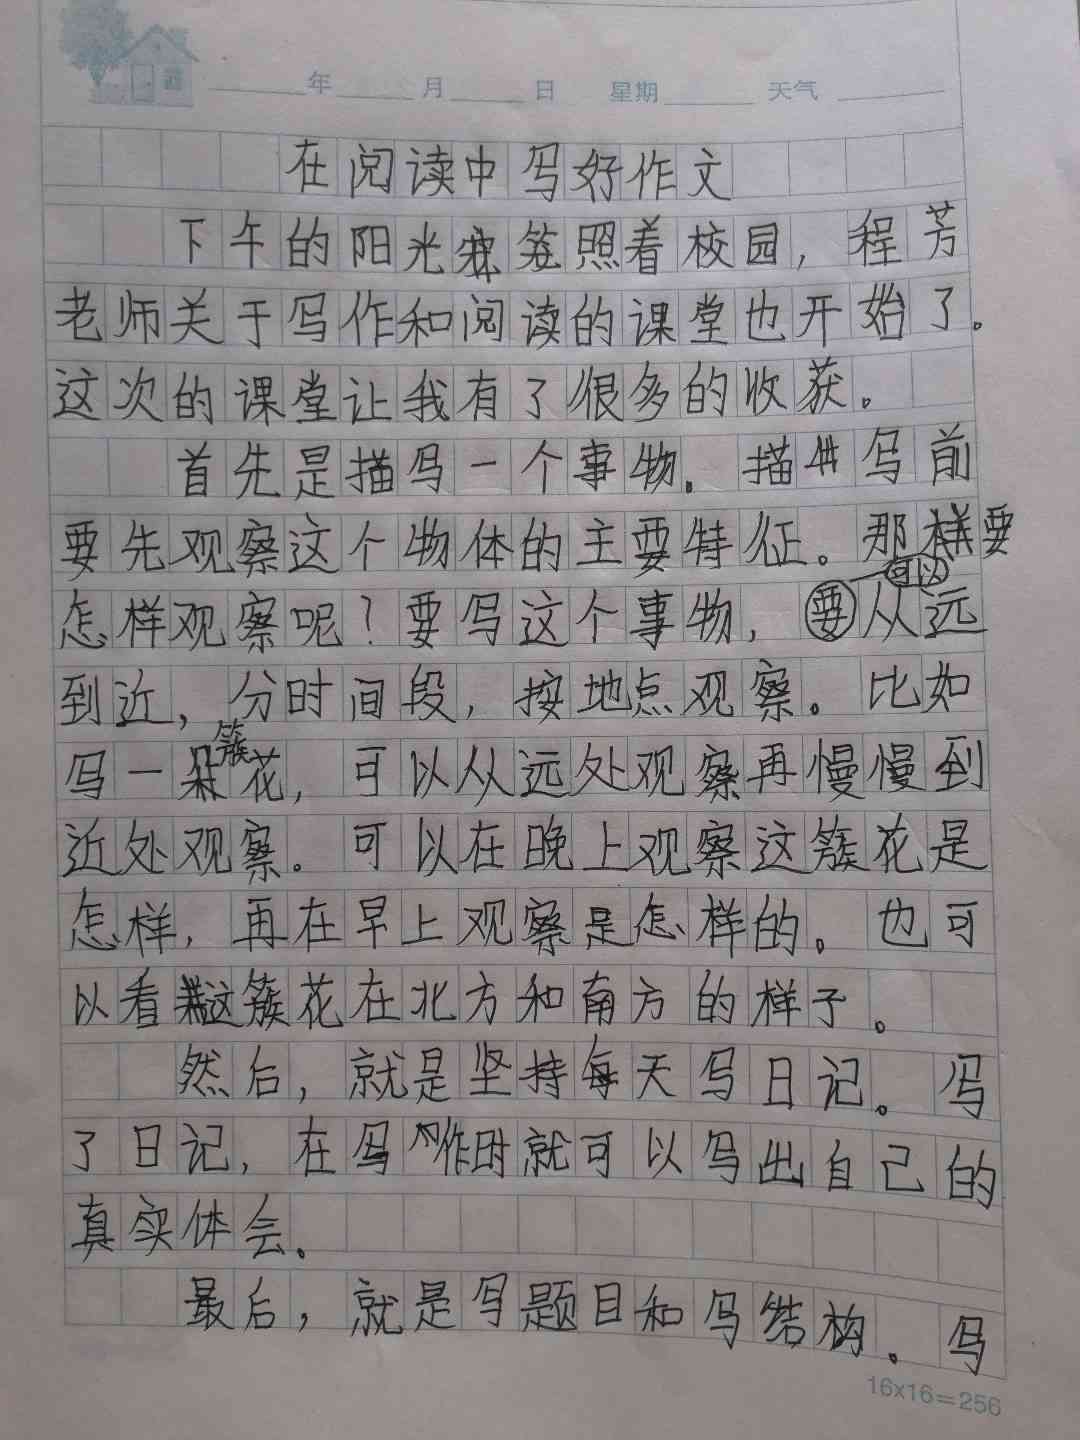 年 月 日 星期 天气
在阅读中写好作文
下午的阳光笼照着校园，程芳
老师关于写作和阅读的课堂也开始了。
这次的课堂让我有了很多的收获。
首先是描写一个事物。描写前
要先观察这个物体的主要特征。那要
怎样观察呢？要写这个事物，可以从远
到近，分时间段，按地点观察。比如
写一簇花，可以从远处观察再慢慢到
近处观察。可以在晚上观察这簇花是
怎样，再在早上观察是怎样的。也可
以看这簇花在北方和南方的样子。
然后，就是坚持每天写日记。写
了日记，在写作时就可以写出自己的
真实体会。
最后，就是写题目和写结构。写
16x16=256